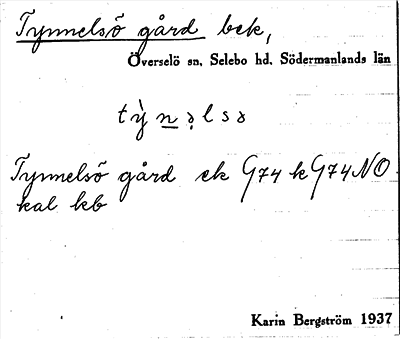 Tynnelsö gård bek,
Överselö sn, Selebo hd, Södermanlands län
tỳn̲ə̣lsə
Tynnelsö gård ek G74 k G74NO
kal kb
Karin Bergström 1937